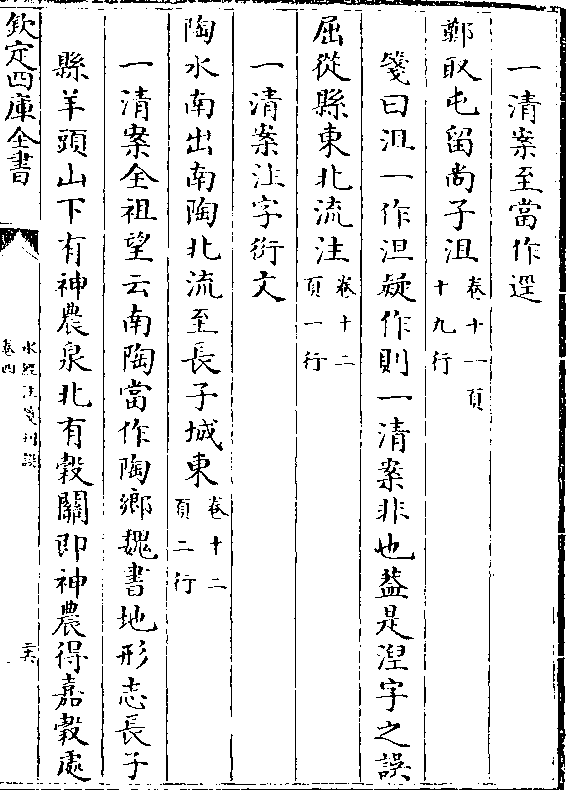 一清案至當作逕
鄭取屯留尚子沮 卷十一頁十九行
箋曰沮一作泹疑作則一清案非也葢是涅字之誤
屈從縣東北流注 卷十二頁一行
一清案注字衍文
陶水南出南陶北流至長子城東 卷十二頁二行
一清案全祖望云南陶當作陶鄉魏書地形志長子
縣羊頭山下有神農泉北有穀關即神農得嘉穀處
欽定四庫全書
水經注箋刊誤
卷四